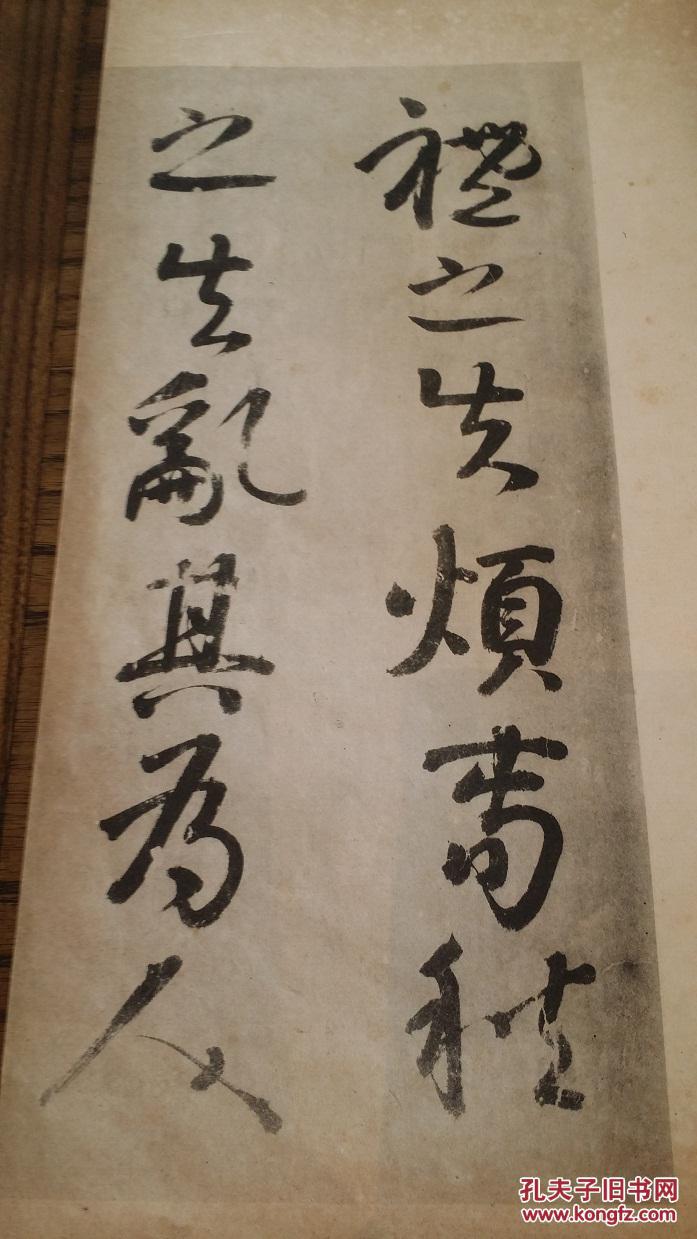 禮之失煩春秋
之失亂其為人
孔夫子旧书网
www.kongfz.com